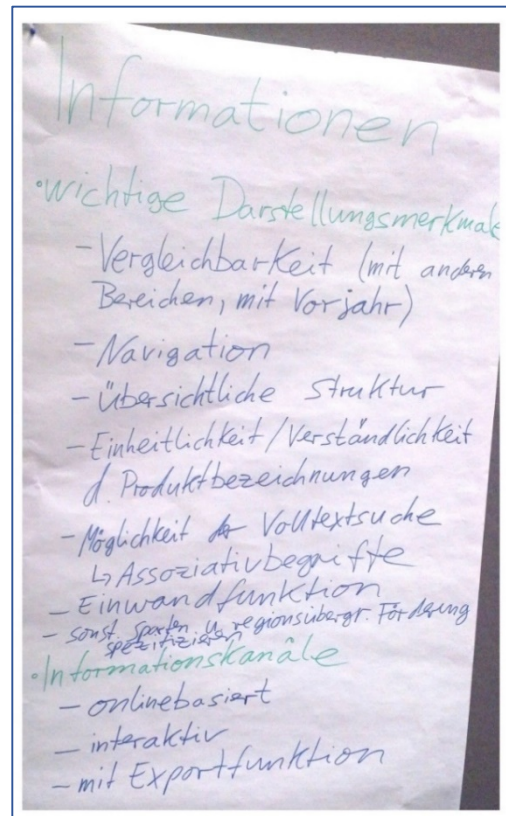 Informationen
•wichtige Darstellungsmerkmale
- Vergleichbarkeit (mit anderen
Bereichen, mit Vorjahr)
- Navigation
- Übersichtliche Struktur
- Einheitlichkeit / Verständlichkeit
d. Produktbezeichnungen
- Möglichkeit Volltextsuche
↳ Assoziativbegriffe
- Einwandfunktion
- sonst. sparten u. regionsübergr. Förderung
spezifizieren
•Informationskanäle
- onlinebasiert
- interaktiv
- mit Exportfunktion